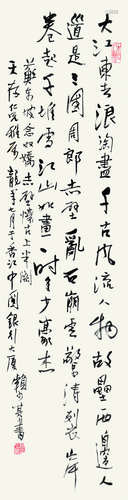 大江東去浪淘盡千古風流人物故壘西邊人
道是三國周郎赤壁亂石崩雲驚濤裂岸
卷起千堆雪江山如畫一時多少豪杰
蘇東坡念奴嬌赤壁懷古上半闋
雅屬龍年月于香江中國銀行大廈賴少其書